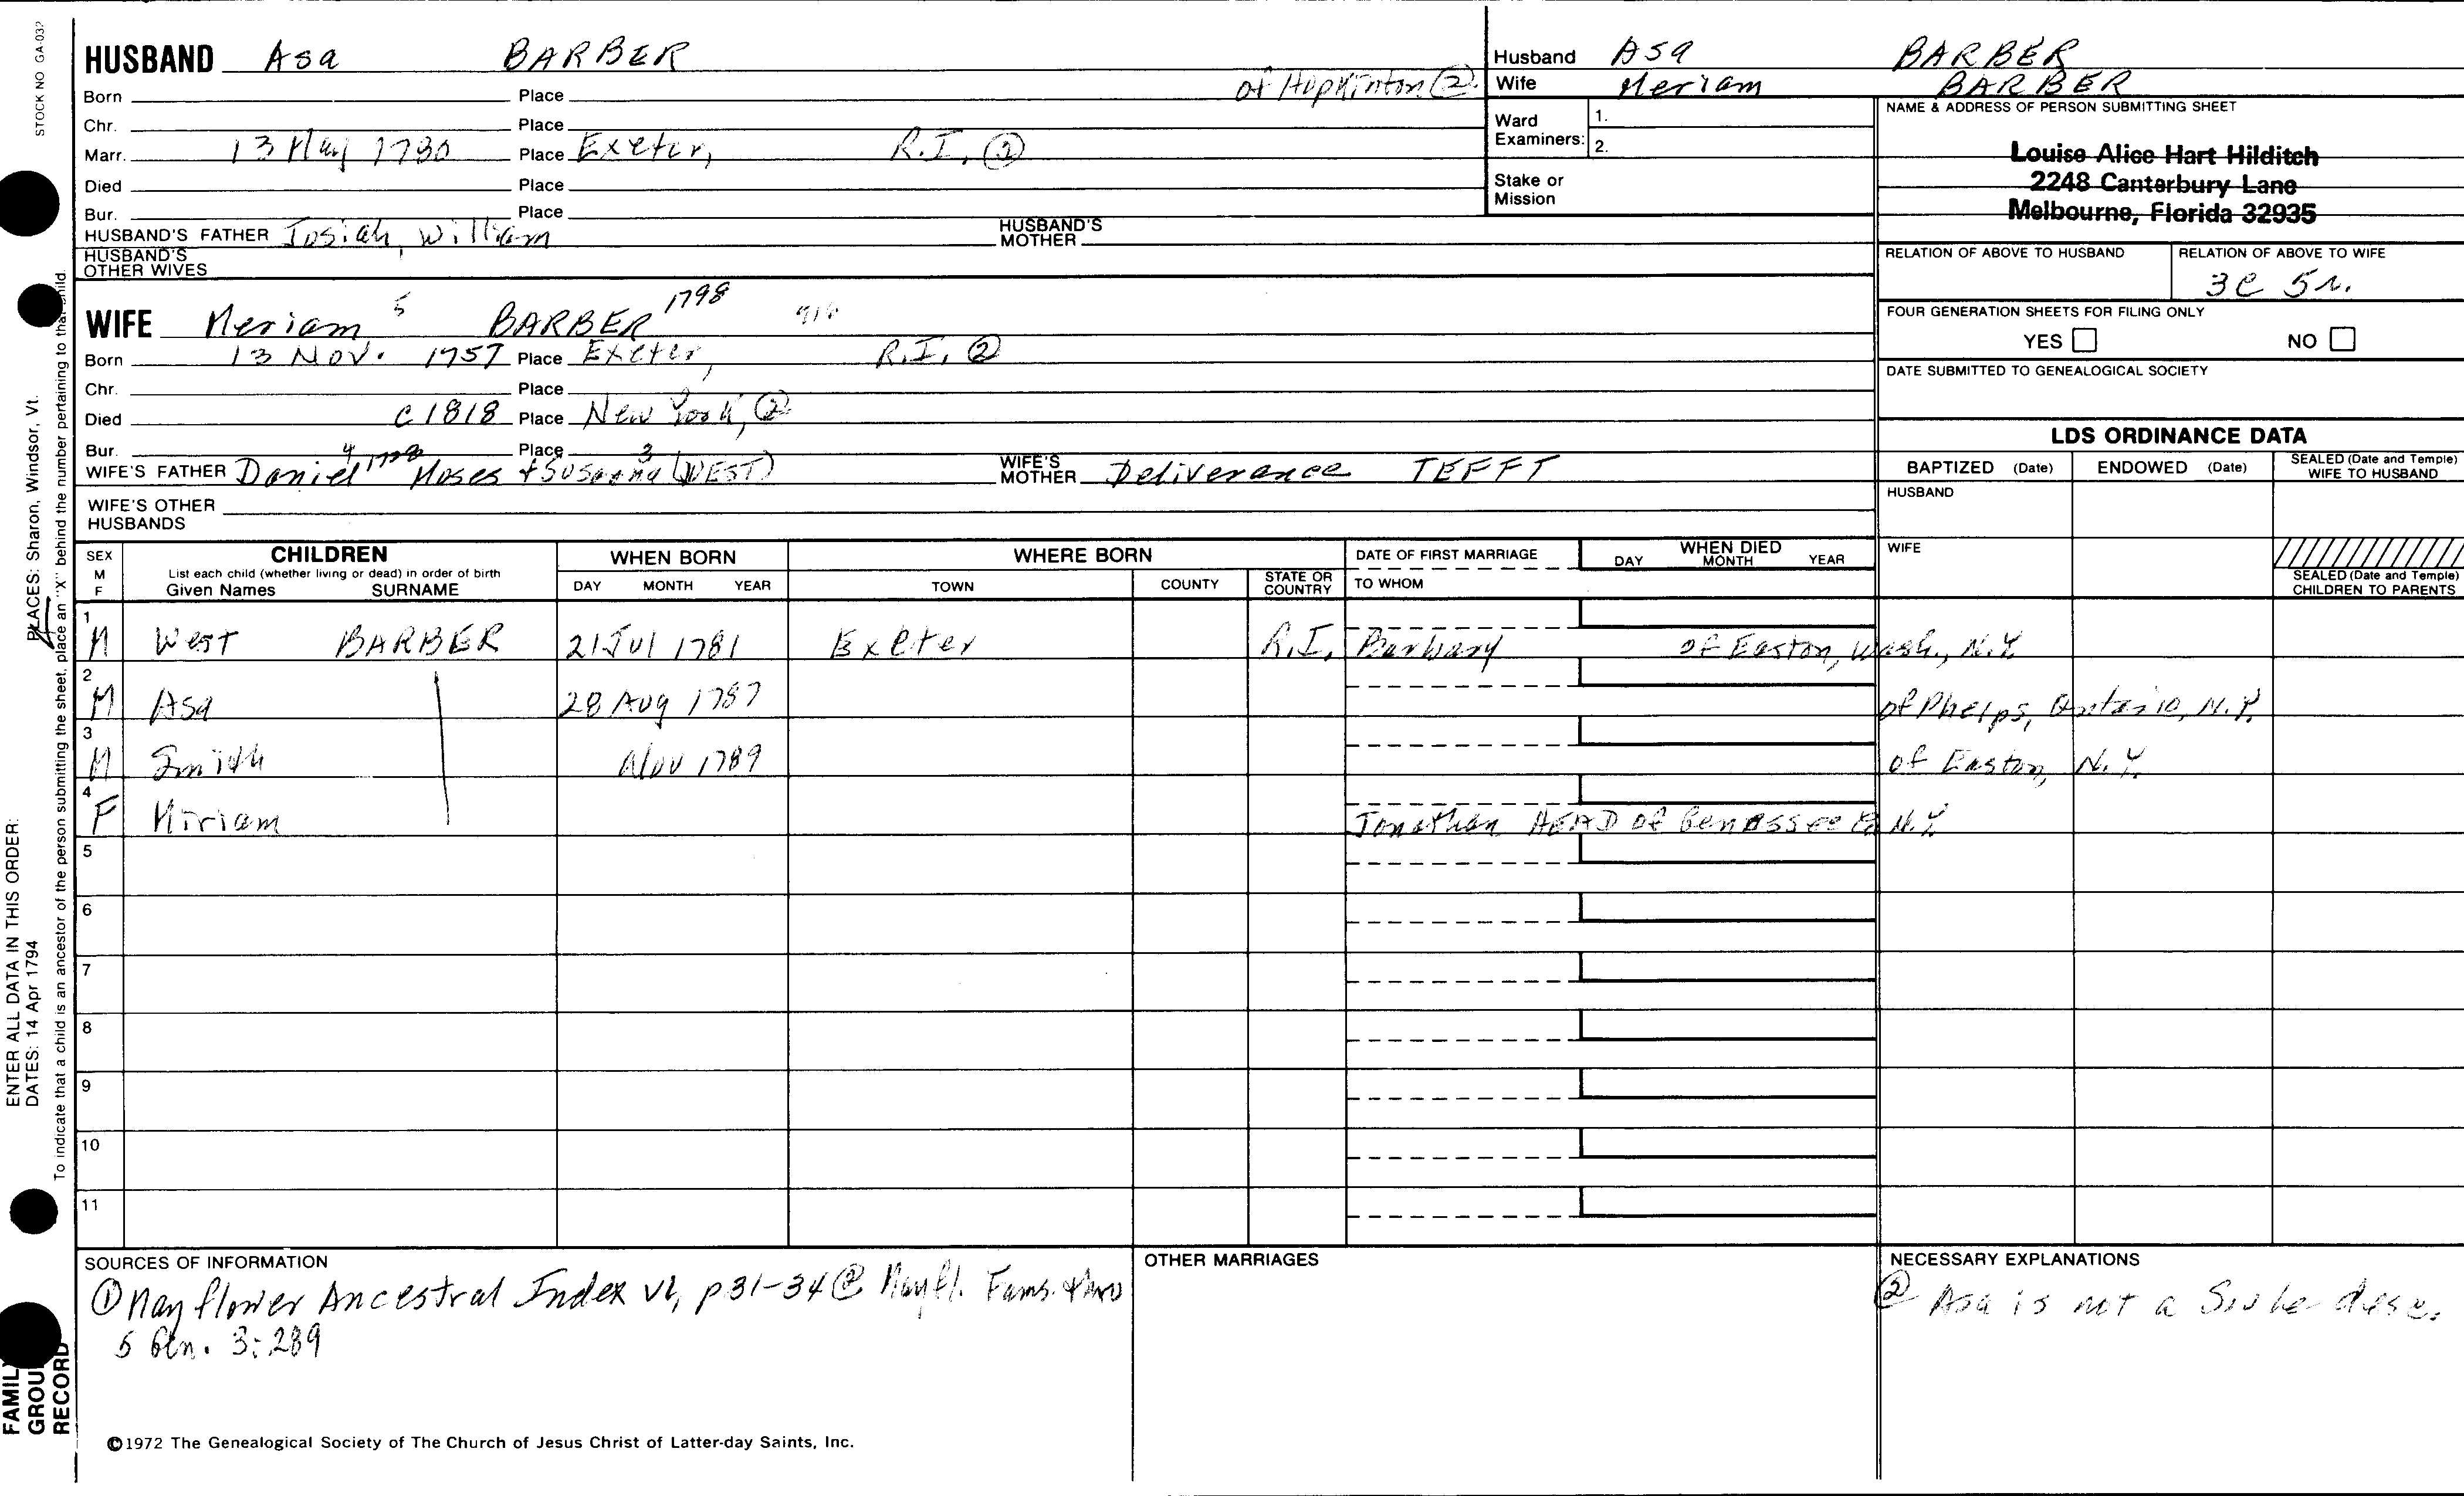 STOCK NO GA-032
HUSBAND Asa BARBER
of Hopkinton ②
Born Place
Chr. Place
Marr. 13 May 1780 Place Exeter, R.I. ②
Died Place
Bur. Place
HUSBAND'S FATHER Josiah, William HUSBAND'S MOTHER
HUSBAND'S OTHER WIVES
WIFE Meriam 5 BARBER 1798
Born 13 Nov. 1757 Place Exeter, R.I. ②
Chr. Place
Died c 1818 Place New York, ②
Bur. Place
WIFE'S FATHER Daniel 4 Moses 3 + Susanna (WEST) WIFE'S MOTHER Deliverance TEFFT
WIFE'S OTHER HUSBANDS
Husband Asa BARBER
Wife Meriam BARBER
Ward Examiners: 1.
2.
Stake or Mission
NAME & ADDRESS OF PERSON SUBMITTING SHEET
Louise Alice Hart Hilditch
2248 Canterbury Lane
Melbourne, Florida 32935
RELATION OF ABOVE TO HUSBAND RELATION OF ABOVE TO WIFE
3C 5r.
FOUR GENERATION SHEETS FOR FILING ONLY
YES NO
DATE SUBMITTED TO GENEALOGICAL SOCIETY
LDS ORDINANCE DATA
BAPTIZED (Date) ENDOWED (Date) SEALED (Date and Temple) WIFE TO HUSBAND
HUSBAND
WIFE
SEALED (Date and Temple) CHILDREN TO PARENTS
SEX M F CHILDREN WHEN BORN WHERE BORN DATE OF FIRST MARRIAGE WHEN DIED
List each child (whether living or dead) in order of birth
Given Names SURNAME DAY MONTH YEAR TOWN COUNTY STATE OR COUNTRY TO WHOM DAY MONTH YEAR
1 M West BARBER 21 Jul 1781 Exeter R.I. Barbary of Easton, Wash., N.Y.
2 M Asa 28 Aug 1787 of Phelps, Ontario, N.Y.
3 M Smith Nov 1789 of Easton, N.Y.
4 F Miriam Jonathan HEAD of Genessee Co N.Y.
5
6
7
8
9
10
11
SOURCES OF INFORMATION
① Mayflower Ancestral Index v1, p 31-34 ② Mayfl. Fams. thro
5 Gen. 3:289
OTHER MARRIAGES
NECESSARY EXPLANATIONS
② Asa is not a Soule desc.
©1972 The Genealogical Society of The Church of Jesus Christ of Latter-day Saints, Inc.
ENTER ALL DATA IN THIS ORDER:
DATES: 14 Apr 1794 PLACES: Sharon, Windsor, Vt.
To indicate that a child is an ancestor of the person submitting the sheet, place an "X" behind the number pertaining to that child.
FAMILY
GROUP
RECORD